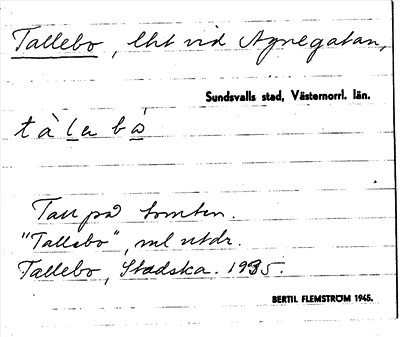 Tallebo, lht vid Agnegatan,
Sundsvalls stad, Västernorrl. län.
tàlebò
Tall på tomten.
"Tallebo", ml utdr.
Tallebo, Stadska. 1935.
BERTIL FLEMSTRÖM 1945.